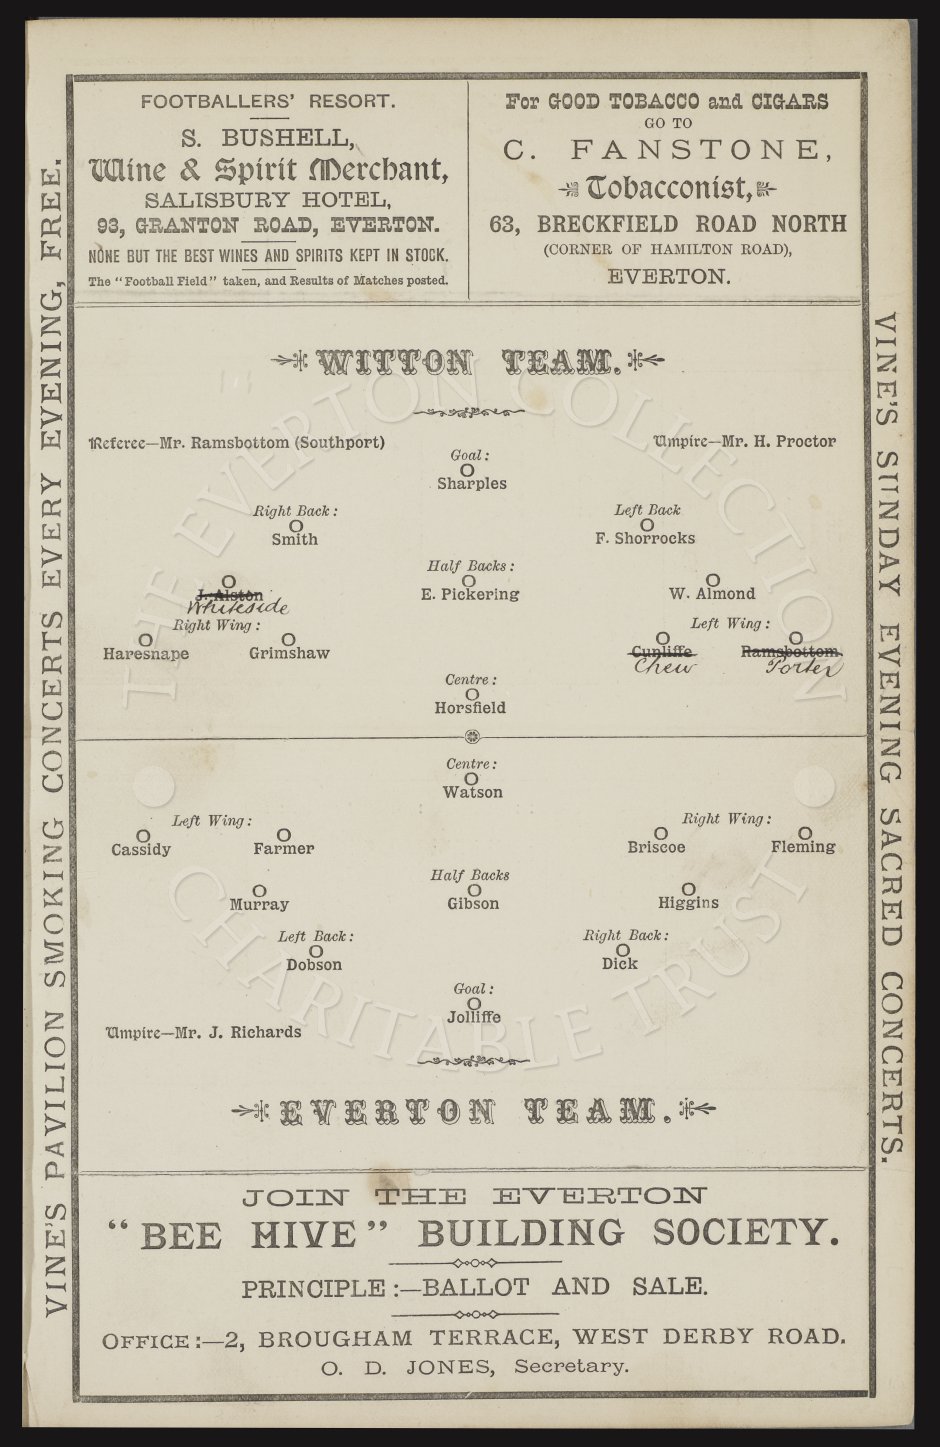 FOOTBALLERS' RESORT.
S. BUSHELL,
Wine & Spirit Merchant,
SALISBURY HOTEL,
93, GRANTON ROAD, EVERTON.
NONE BUT THE BEST WINES AND SPIRITS KEPT IN STOCK.
The "Football Field" taken, and Results of Matches posted.
For GOOD TOBACCO and CIGARS
GO TO
C. FANSTONE,
Tobacconist,
63, BRECKFIELD ROAD NORTH
(CORNER OF HAMILTON ROAD),
EVERTON.
VINE'S PAVILION SMOKING CONCERTS EVERY EVENING, FREE.
VINE'S SUNDAY EVENING SACRED CONCERTS.
WITTON TEAM.
Referee—Mr. Ramsbottom (Southport)
Umpire—Mr. H. Proctor
Goal:
O
Sharples
Right Back:
O
Smith
Left Back
O
F. Shorrocks
Half Backs:
O O O
J. Alston E. Pickering W. Almond
Whiteside
Right Wing:
O O
Haresnape Grimshaw
Left Wing:
O O
Cunliffe Ramsbottom.
Chew Porter
Centre:
O
Horsfield
Centre:
O
Watson
Left Wing:
O O
Cassidy Farmer
Right Wing:
O O
Briscoe Fleming
Half Backs
O O O
Murray Gibson Higgins
Left Back:
O
Dobson
Right Back:
O
Dick
Goal:
O
Jolliffe
Umpire—Mr. J. Richards
EVERTON TEAM.
JOIN THE EVERTON
"BEE HIVE" BUILDING SOCIETY.
PRINCIPLE:—BALLOT AND SALE.
OFFICE:—2, BROUGHAM TERRACE, WEST DERBY ROAD.
O. D. JONES, Secretary.
THE EVERTON COLLECTION
CHARITABLE TRUST